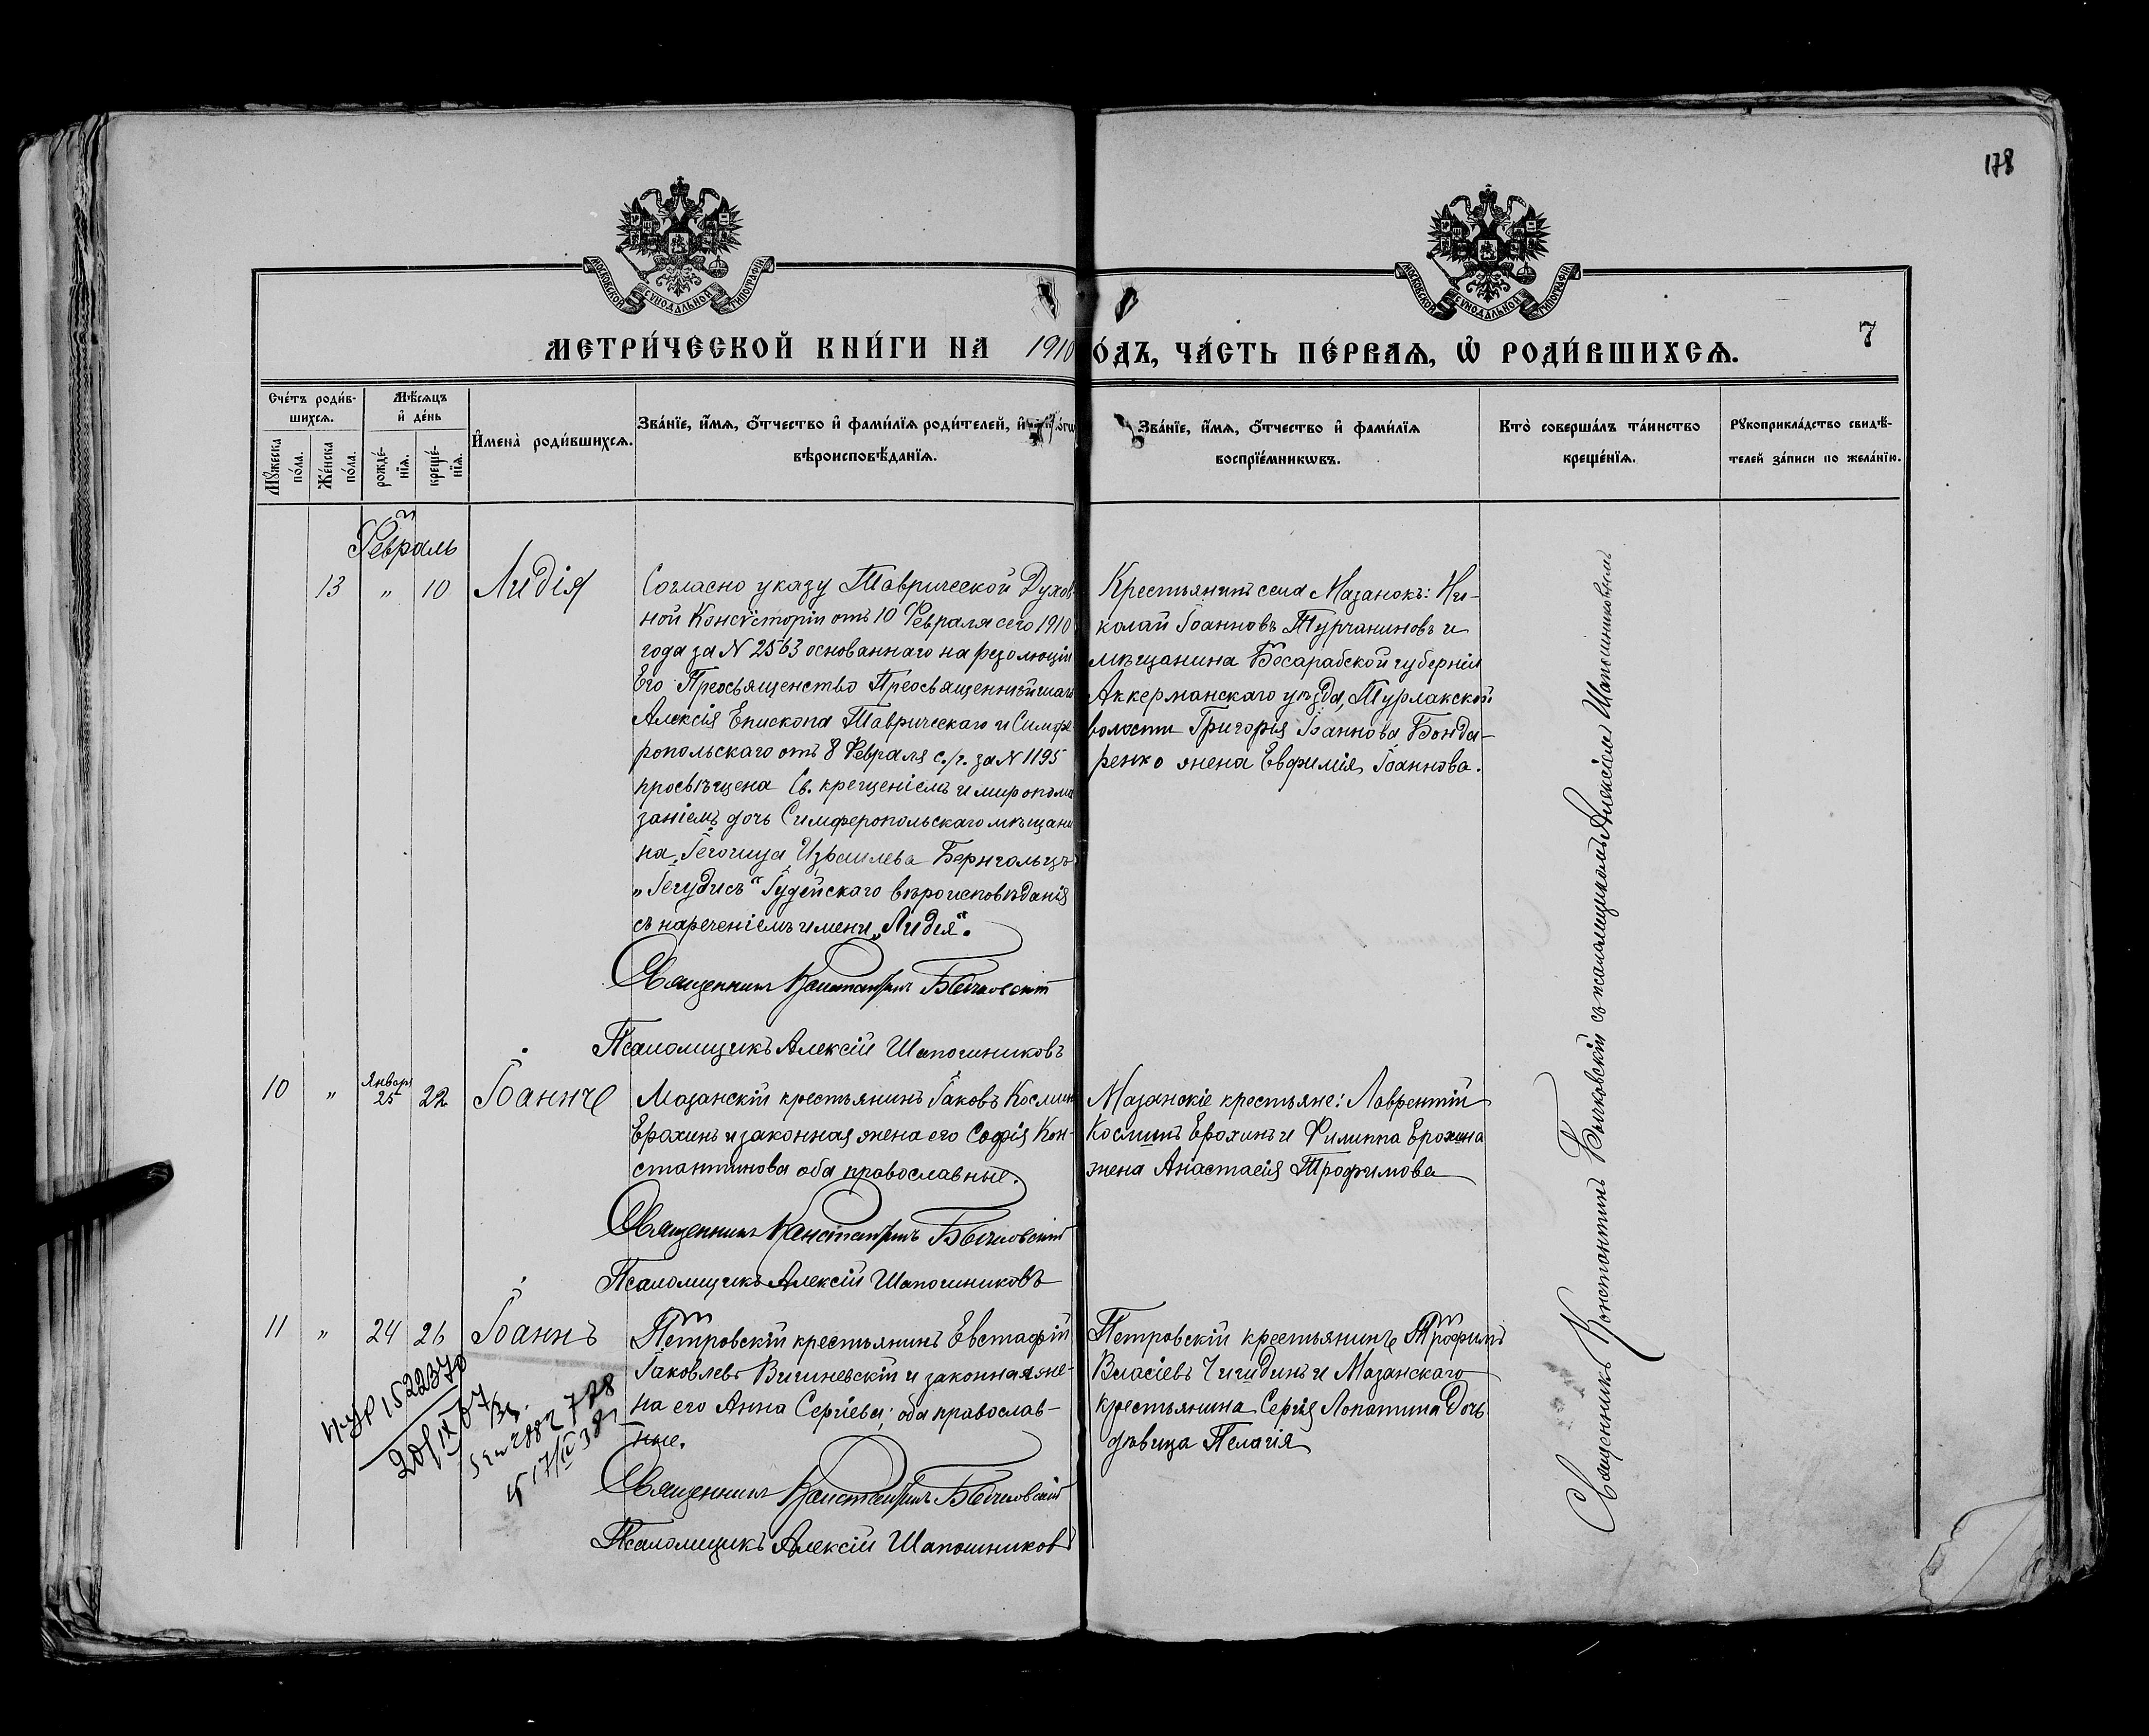 178
МОСКОВСКОЙ СУНОДАЛЬНОЙ ТИПОГРАФІИ
МОСКОВСКОЙ СУНОДАЛЬНОЙ ТИПОГРАФІИ
МЕТРИ́ЧЕСКОЙ КНИ́ГИ НА 1910
О́ДЪ, ЧА́СТЬ ПЕ́РВАѦ, Ѡ҆ РОДИ́ВШИХСѦ.
7
Сче́тъ роди́в-
шихсѧ.
Мꙋ́жеска по́ла.
Же́нска по́ла.
Мѣ́сѧцъ
и҆ де́нь
рожде́-нїѧ.
креще́-нїѧ.
И҆мена̀ роди́вшихсѧ.
Зва́нїе, и҆́мѧ, ѻ҆́тчество и҆ фами́лїѧ роди́телей, и҆
вѣроисповѣ́данїѧ.
Зва́нїе, и҆́мѧ, ѻ҆́тчество и҆ фами́лїѧ
воспрїе́мникѡвъ.
Кто̀ соверша́лъ та́инство
креще́нїѧ.
Рꙋкоприкла́дство свидѣ́-
телей за́писи по жела́нїю.
Февраль
13 „ 10 Лидія
Согласно указу Таврической Духов-
ной Консисторіи отъ 10 Февраля сего 1910
года за N 2563 основаннаго на резолюціи
Его Преосвященство Преосвященнѣйшаго
Алексія Епископа Таврическаго и Симфе-
ропольскаго отъ 8 Февраля с./г. за N 1195
просвѣщена Св. крещеніемъ и миропома
заніемъ дочь Симферопольскаго мѣщани
на Израилева Бернгольцъ
Іудейскаго вѣроисповѣданія
съ нареченіемъ имени „Лидія“.
Священникъ Константинъ Бычковскій
Псаломщикъ Алексій Шапошниковъ
Крестьянинъ села Мазанокъ: Ни-
колай Іоанновъ Турчаниновъ и
мѣщанина Бесарабской губерніи
Аккерманскаго уѣзда, Турлакской
волости Григорія Іоаннова Бонда-
ренко жена Евфимія Іоаннова.
10 „ Январь 25 22 Іоаннъ
Мазанскій крестьянинъ Іаковъ Косминъ
Ерохинъ и законная жена его Софія Кон-
стантинова оба православные.
Священникъ Константинъ Бычковскій
Псаломщикъ Алексій Шапошниковъ
Мазанскіе крестьяне: Лаврентій
Косминъ Ерохинъ и Филиппа Ерохина
жена Анастасія Трофимова
11 „ 24 26 Іоаннъ
Петровскій крестьянинъ Евстафій
Іаковлевъ Вишневскій и законная же-
на его Анна Сергіева; оба православ-
ные.
Священникъ Константинъ Бычковскій
Псаломщикъ Алексій Шапошниковъ
Петровскій крестьянинъ Трофимъ
Власіевъ Чигидинъ и Мазанскаго
крестьянина Сергія Лопатина дочь
дѣвица Пелагія
Священникъ Константинъ Бычковскій съ псаломщикомъ Алексіемъ Шапошниковымъ